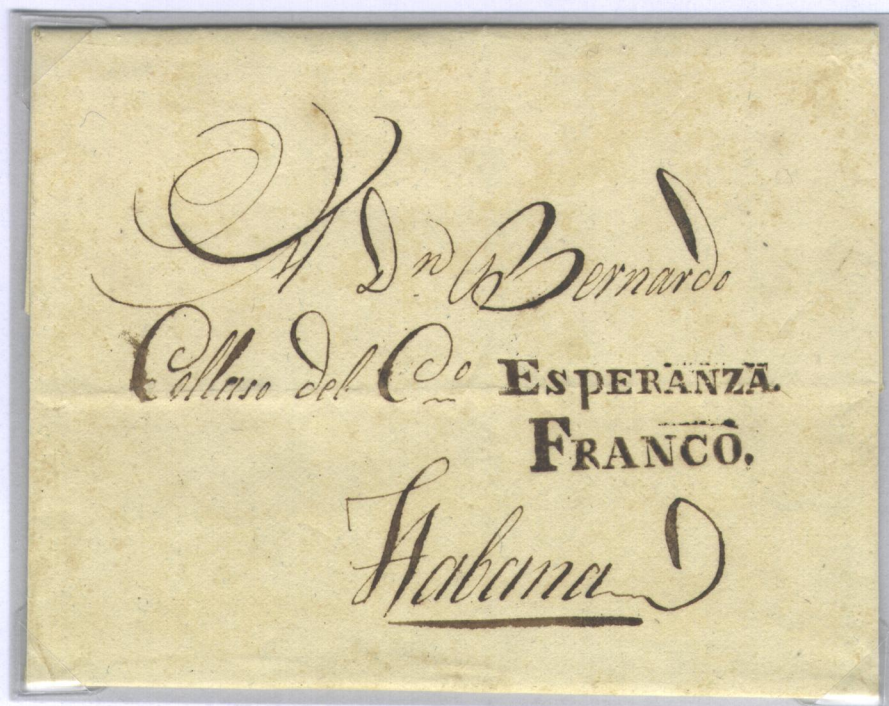 A Dn Bernardo
Collaso del Co ESPERANZA.
FRANCO.
Habana